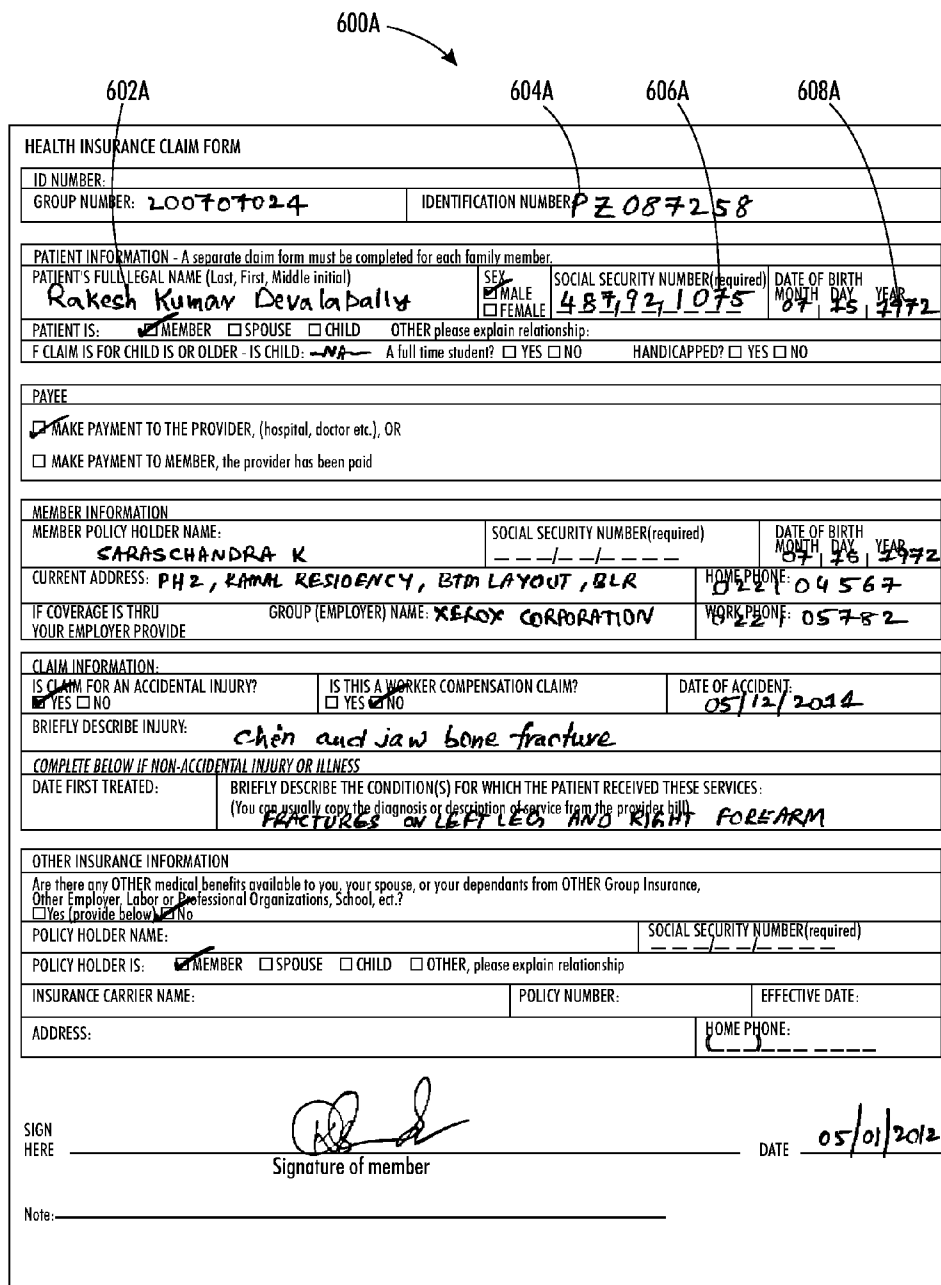 600A
602A 604A 606A 608A
HEALTH INSURANCE CLAIM FORM
ID NUMBER:
GROUP NUMBER: 200707024 IDENTIFICATION NUMBER PZ087258
PATIENT INFORMATION - A separate claim form must be completed for each family member.
PATIENT'S FULL LEGAL NAME (Last, First, Middle initial) SEX SOCIAL SECURITY NUMBER(required) DATE OF BIRTH
Rakesh Kumar Devalapally MALE 487,92,1075 MONTH DAY YEAR
FEMALE 07 15 1972
PATIENT IS: MEMBER SPOUSE CHILD OTHER please explain relationship:
F CLAIM IS FOR CHILD IS OR OLDER - IS CHILD: NA A full time student? YES NO HANDICAPPED? YES NO
PAYEE
MAKE PAYMENT TO THE PROVIDER, (hospital, doctor etc.), OR
MAKE PAYMENT TO MEMBER, the provider has been paid
MEMBER INFORMATION
MEMBER POLICY HOLDER NAME: SOCIAL SECURITY NUMBER(required) DATE OF BIRTH
SARASCHANDRA K MONTH DAY YEAR
07 1972
CURRENT ADDRESS: PH2, KAMAL RESIDENCY, BTM LAYOUT, BLR HOME PHONE: 022104567
IF COVERAGE IS THRU GROUP (EMPLOYER) NAME: XEROX CORPORATION WORK PHONE: 022105782
YOUR EMPLOYER PROVIDE
CLAIM INFORMATION:
IS CLAIM FOR AN ACCIDENTAL INJURY? IS THIS A WORKER COMPENSATION CLAIM? DATE OF ACCIDENT:
YES NO YES NO 05/12/2011
BRIEFLY DESCRIBE INJURY: Chin and jaw bone fracture
COMPLETE BELOW IF NON-ACCIDENTAL INJURY OR ILLNESS
DATE FIRST TREATED: BRIEFLY DESCRIBE THE CONDITION(S) FOR WHICH THE PATIENT RECEIVED THESE SERVICES:
(You can usually copy the diagnosis or description of service from the provider bill)
FRACTURES ON LEFT LEG AND RIGHT FOREARM
OTHER INSURANCE INFORMATION
Are there any OTHER medical benefits available to you, your spouse, or your dependants from OTHER Group Insurance,
Other Employer, Labor or Professional Organizations, School, ect.?
Yes (provide below) No
POLICY HOLDER NAME: SOCIAL SECURITY NUMBER(required)
POLICY HOLDER IS: MEMBER SPOUSE CHILD OTHER, please explain relationship
INSURANCE CARRIER NAME: POLICY NUMBER: EFFECTIVE DATE:
ADDRESS: HOME PHONE:
SIGN
HERE DATE 05/01/2012
Signature of member
Note: